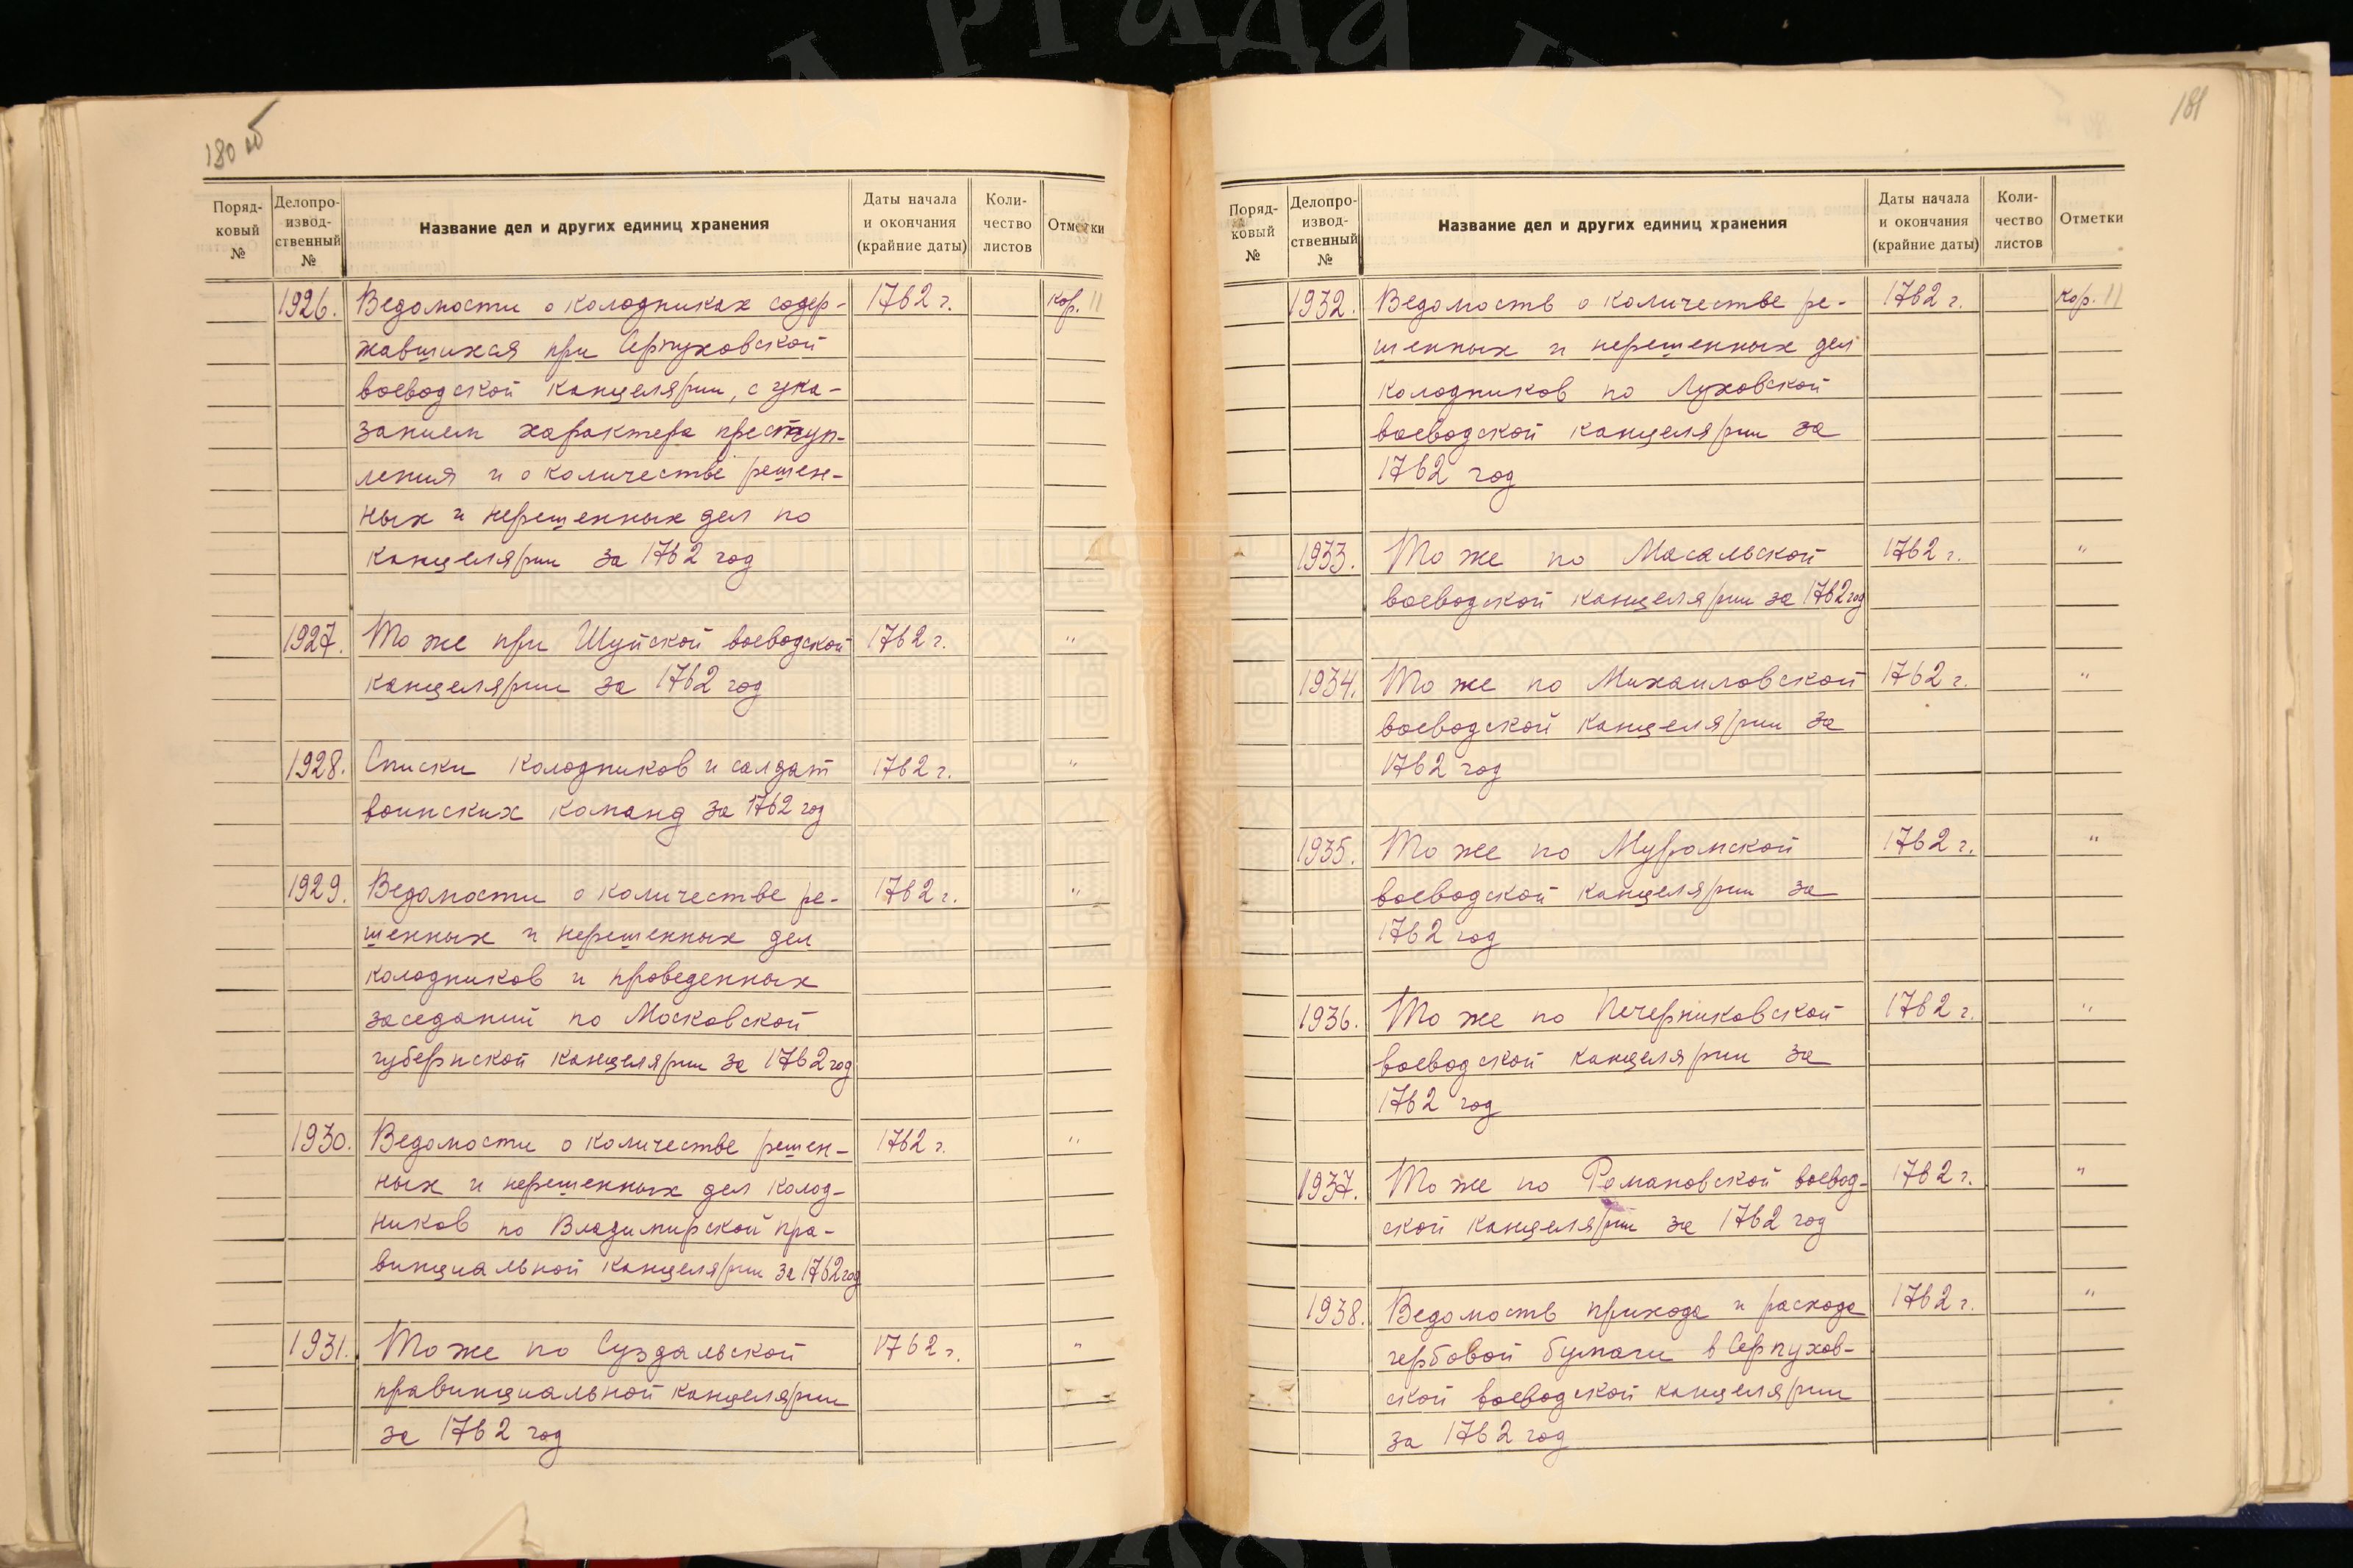 180 об
Поряд-
ковый
№
Делопро-
извод-
ственный
№
Название дел и других единиц хранения
Даты начала
и окончания
(крайние даты)
Коли-
чество
листов
Отметки
1926. Ведомости о колодниках содер- 1762 г. кор. 11
жавшихся при Серпуховской
воеводской канцелярии, с ука-
занием характера преступ-
ления и о количестве решен-
ных и нерешенных дел по
канцелярии за 1762 год
1927. То же при Шуйской воеводской 1762 г. "
канцелярии за 1762 год
1928. Списки колодников и солдат 1762 г. "
воинских команд за 1762 год
1929. Ведомости о количестве ре- 1762 г. "
шенных и нерешенных дел
колодников и проведенных
заседаний по Московской
губернской канцелярии за 1762 год
1930. Ведомости о количестве решен- 1762 г. "
ных и нерешенных дел колод-
ников по Владимирской про-
винциальной канцелярии за 1762 год
1931. То же по Суздальской 1762 г. "
провинциальной канцелярии
за 1762 год
181
Поряд-
ковый
№
Делопро-
извод-
ственный
№
Название дел и других единиц хранения
Даты начала
и окончания
(крайние даты)
Коли-
чество
листов
Отметки
1932. Ведомость о количестве ре- 1762 г. кор. 11
шенных и нерешенных дел
колодников по Луховской
воеводской канцелярии за
1762 год
1933. То же по Масальской 1762 г. "
воеводской канцелярии за 1762 год
1934. То же по Михаиловской 1762 г. "
воеводской канцелярии за
1762 год
1935. То же по Муромской 1762 г. "
воеводской канцелярии за
1762 год
1936. То же по Печерниковской 1762 г. "
воеводской канцелярии за
1762 год
1937. То же по Романовской воевод- 1762 г. "
ской канцелярии за 1762 год
1938. Ведомость прихода и расхода 1762 г. "
гербовой бумаги в Серпухов-
ской воеводской канцелярии
за 1762 год